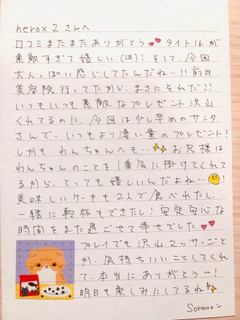 herox2さんへ
口コミまたまたありがとう💕タイトルが
素敵すぎて嬉しい(泣)!そして、今回
大人っぽい感じしてたんだね…!!前日
美容院行ってたから、まさにそれだ!!
いつもいつも素敵なプレゼント沢山
くれてるのに、今回は少し早めのサンタ
さんで、いつもより濃い量のプレゼント!
しかも、わんちゃんへも…✨お兄様は
わんちゃんのことを1番気に掛けてくれて
るから、とっても嬉しいんだよね…😊!
美味しいケーキも2人で食べれたし、
一緒に乾杯もできたし!安定安心な
時間をまた過ごせて幸せでした💕
プレイでも沢山マッサージと
か、気持ちいいことしてくれ
て、本当にありがとうー!
明日も楽しみにしてるね✨
Sorano